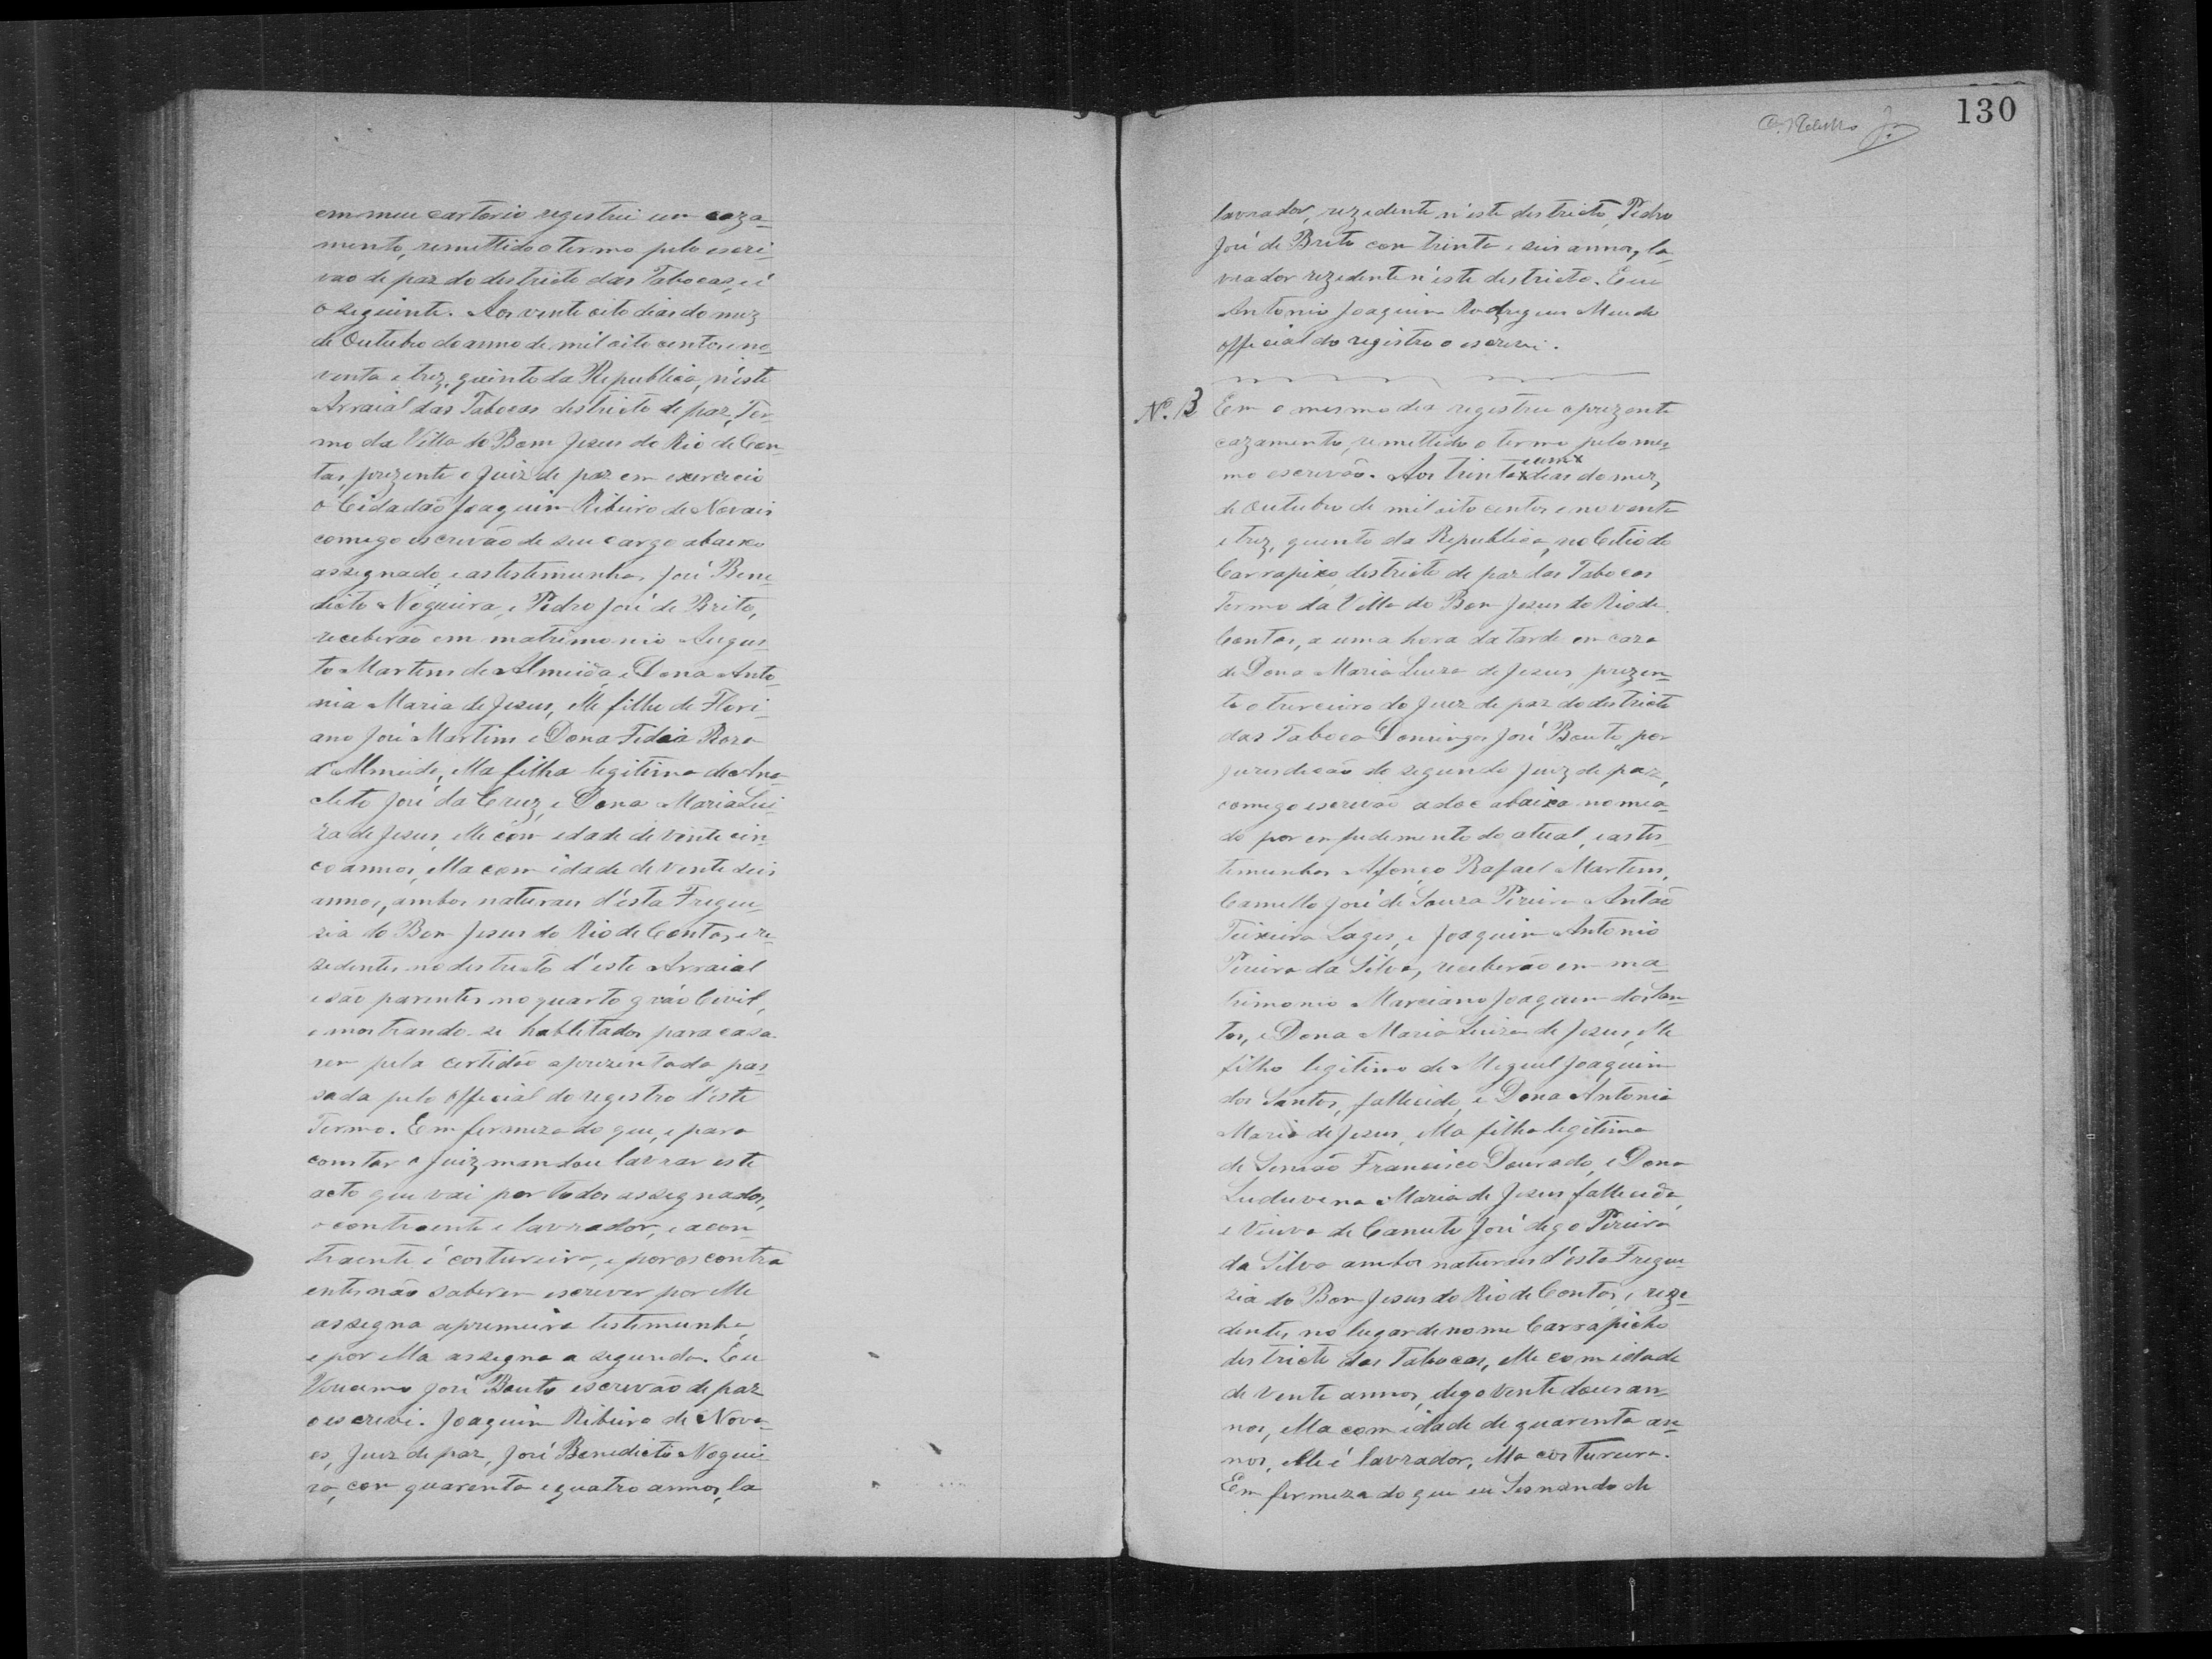 em meu cartorio registrei um caza-
mento, remettido o termo pelo escri-
vão de paz do districto das Tabocas, é
o seguinte. Aos vente oito dias do mez
de Outubro do anno de mil oito centos e no-
venta e trez, quinto da Republica, n'este
Arraial das Tabocas districto de paz, Ter-
mo da Villa do Bom Jesus do Rio de Con-
tas, prezente o Juiz de paz em exercicio
o Cidadão Joaquim Ribeiro de Novais
comigo escrivão de seu cargo abaixo
assegnado, e as testemunhas José Bene-
dicto Nogueira, e Pedro José de Brito,
receberão em matrimonio Augus-
to Martins de Almeida e Dona Anto-
nia Maria de Jesus, elle filho de Flori-
ano José Martins e Dona Roza
d'Almeida, ella filha legitima de Ana-
cleto José da Cruz, e Dona Maria Lui-
za de Jesus, elle com edade de vinte cin-
co annos, ella com idade de vente seis
annos, ambos naturais d'esta Fregue-
sia do Bom Jesus do Rio de Contas, e re-
zedentes no destricto d'este Arraial
e são parentes no quarto gráo Civil,
e mostrando-se habletados para casa-
rem pela certidão aprezentada, pas-
sada pelo official do registro d'este
Termo. Em fermeza do que, e para
constar o Juiz mandou lavrar este
acto que vai por todos assegnados,
o contraente e lavrador, e a con-
traente é costureira, e por os contra-
entes não saberem escrever por elle
assegna a premeira testemunha,
e por ella assegna a segunda. Eu
José Bento escrivão de paz
o escrevi. Joaquim Ribeiro de Nova-
es, Juiz de paz, José Benedicto Noguei-
ra, com quarenta e quatro annos, la
130
lavrador, rezedente n'este destricto, Pedro
José de Brito com trinta e seis annos, la-
vrador rezedente n'este destricto. E eu
Antonio Joaquim Rodrigues
official do registro o escrevi.
Nº. 3 Em o mesmo dia registrei o prezente
cazamento, remettido o termo pelo mes-
mo escrivão. Aos trinta x dias do mez
um x
de Outubro de mil oito centos e noventa
e trez, quinto da Republica, no Citio do
Carrapixo, destricto de paz das Tabocas
Termo da Villa do Bom Jesus do Rio de
Contas, a uma hora da tarde em caza
de Dona Maria Luiza de Jesus, prezen-
te o terceiro do Juiz de paz do destricto
das Taboca Domingos José Bento, por
jurisdicão do segundo Juiz de paz,
comigo escrivão adoc abaixo nomea-
do por empedemento do atual, e as tes-
temunhas Afonço Rafael Martins,
Camello José de Souza Pereira Antão
Teixeira Lages, e Joaquim Antonio
Pereira da Silva, receberão em ma-
trimonio Marciano Joaquim dos San-
tos, e Dona Maria Luiza de Jesus, elle
filho legitimo de Meguel Joaquim
dos Santos, fallecido, e Dona Antonia
Maria de Jesus, ella filha legitima
de Simião Francisco Dourado, e Dona
Luduvina Maria de Jesus fallecida,
e Viuva de Canuto José dego Pereira
da Silva ambos naturais d'esta Fregue-
zia do Bom Jesus do Rio de Contas, e reze-
dentes no lugar de nome Carrapicho
destricto das Tabocas, elle com idade
de vente annos, dego vente dous an-
nos, ella com idade de quarenta an-
nos, elle é lavrador, ella costureira.
Em fermeza do que eu Sesnando de